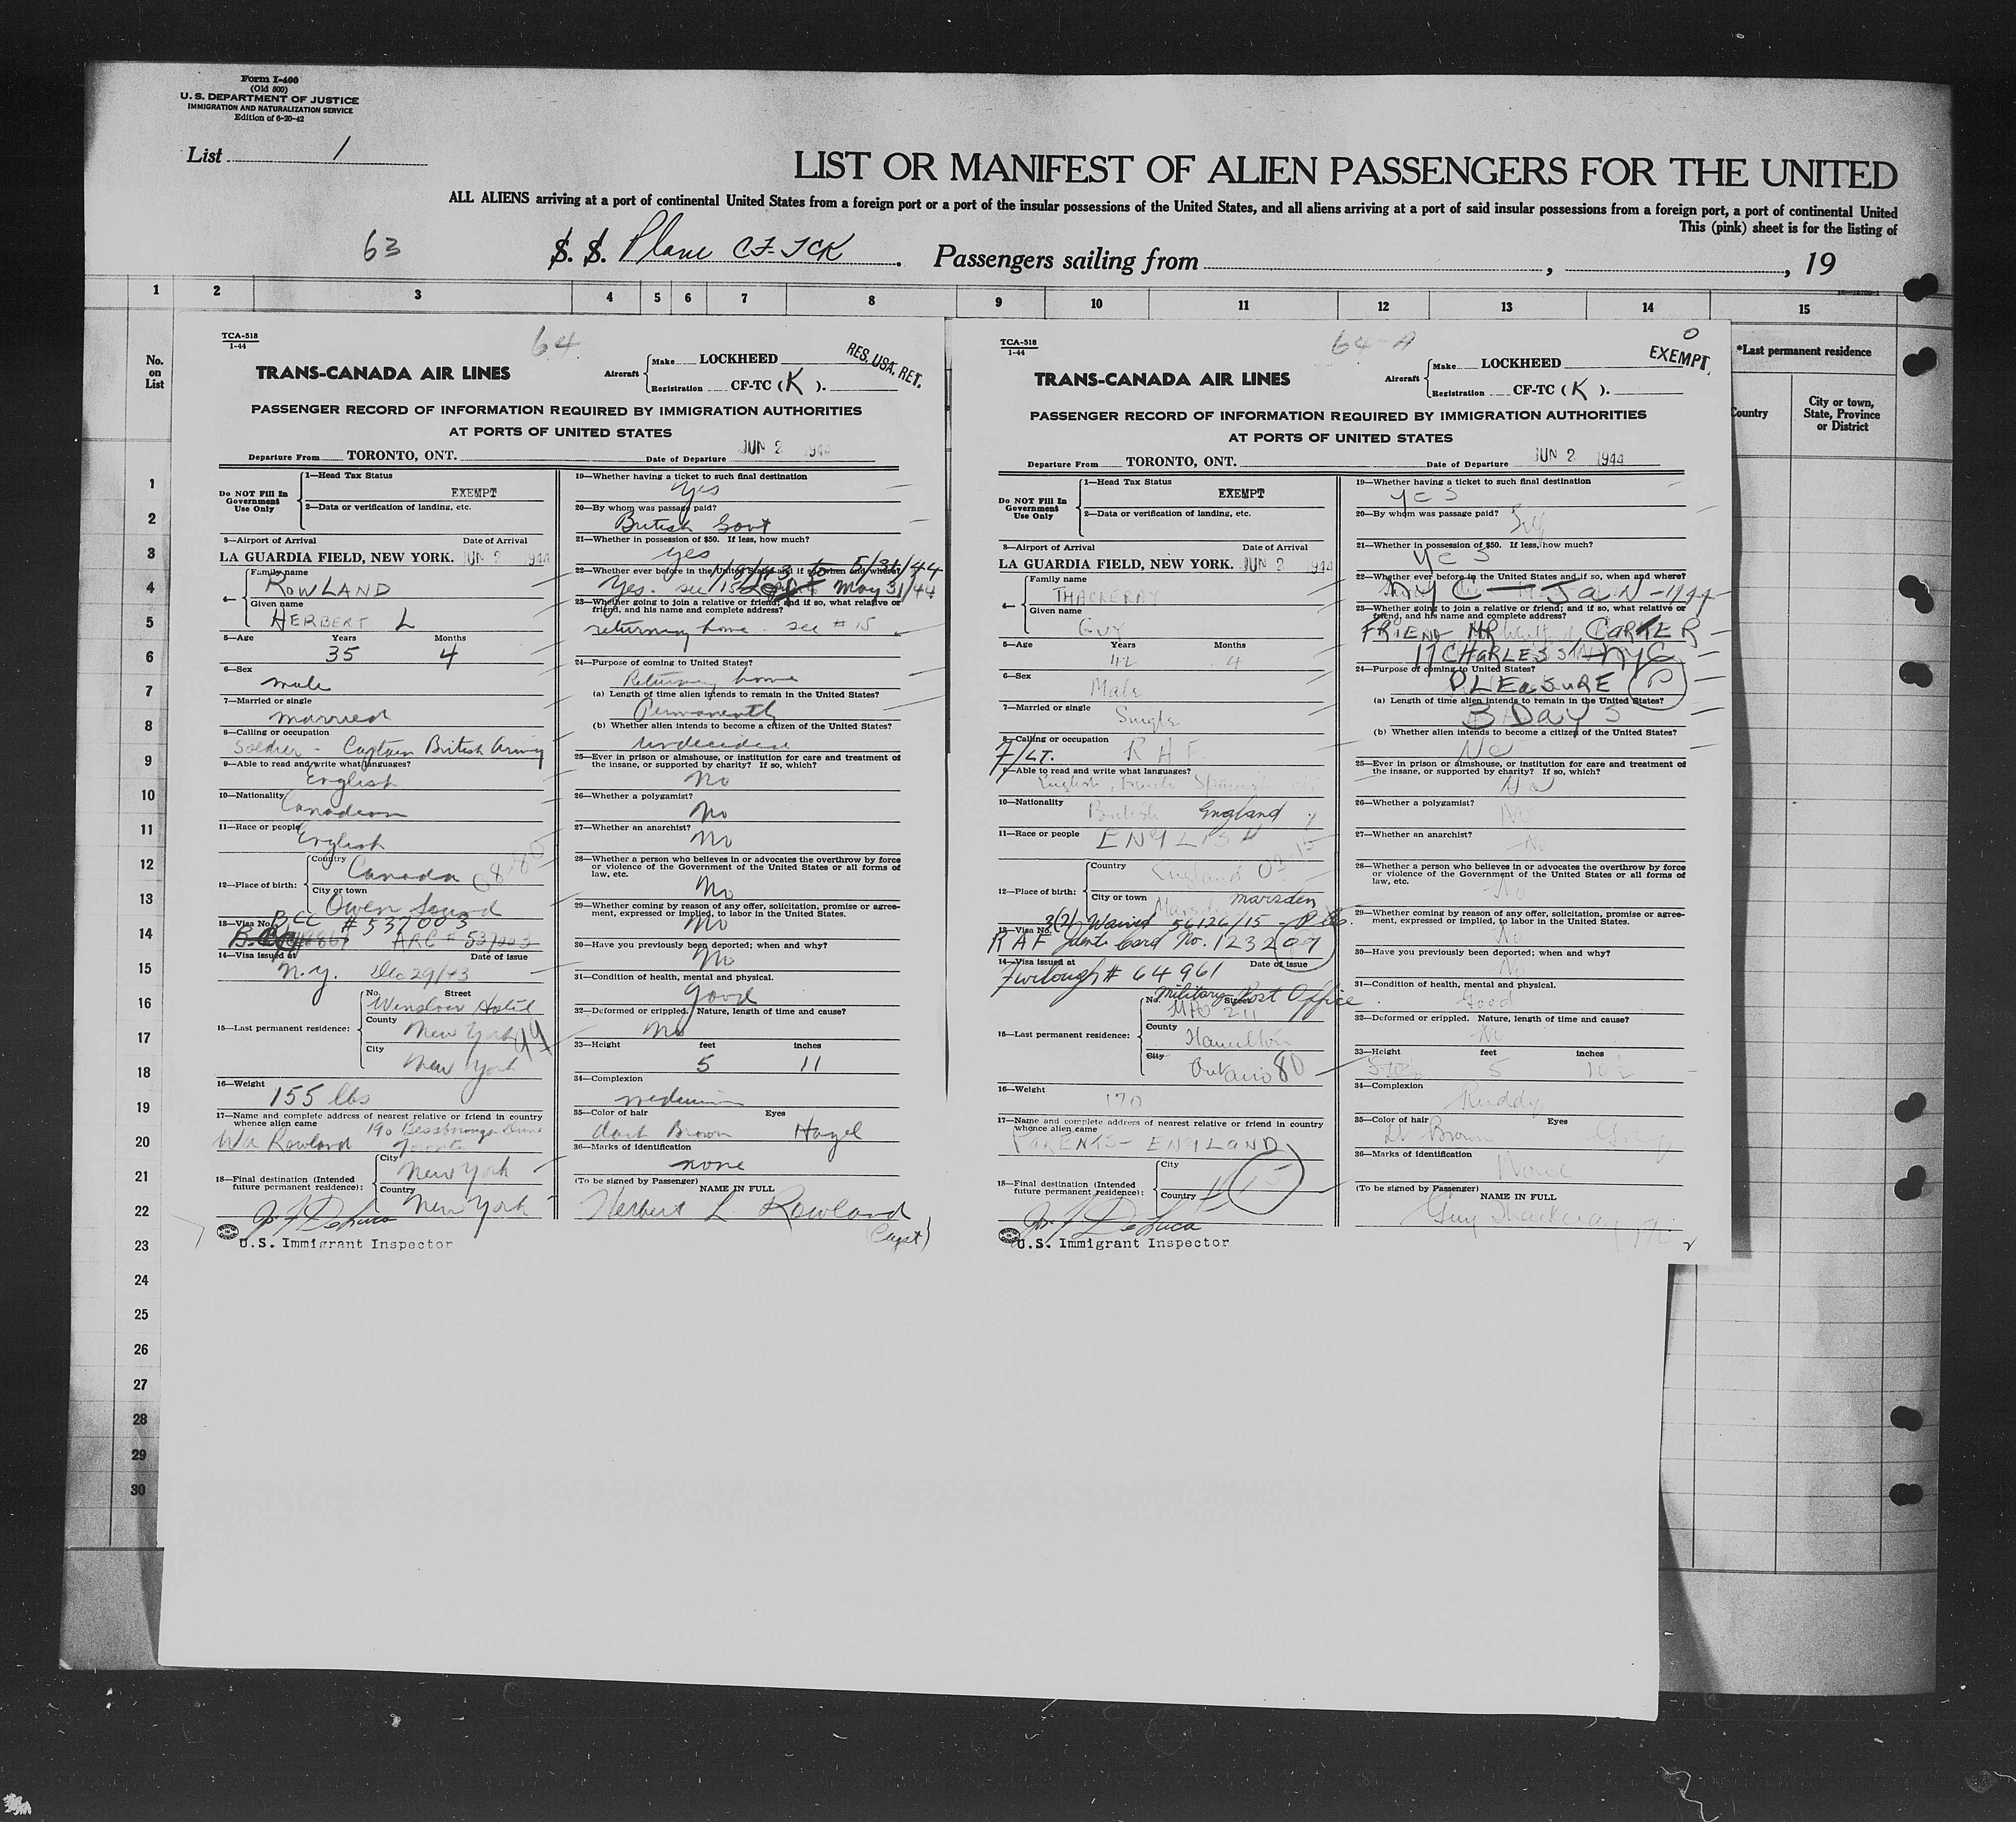 Form I-400
(Old 500)
U. S. DEPARTMENT OF JUSTICE
IMMIGRATION AND NATURALIZATION SERVICE
Edition of 6-20-42
List 1
LIST OR MANIFEST OF ALIEN PASSENGERS FOR THE UNITED
ALL ALIENS arriving at a port of continental United States from a foreign port or a port of the insular possessions of the United States, and all aliens arriving at a port of said insular possessions from a foreign port, a port of continental United
This (pink) sheet is for the listing of
63 S. S. Plane CF-TCK. Passengers sailing from , , 19
1 2 3 4 5 6 7 8 9 10 11 12 13 14 15
No.
on
List
*Last permanent residence
Country
City or town,
State, Province
or District
1
2
3
4
5
6
7
8
9
10
11
12
13
14
15
16
17
18
19
20
21
22
23
24
25
26
27
28
29
30
TCA-518
1-44
64
RES. USA. RET.
TRANS-CANADA AIR LINES
Aircraft
Make LOCKHEED
Registration CF-TC (K).
PASSENGER RECORD OF INFORMATION REQUIRED BY IMMIGRATION AUTHORITIES
AT PORTS OF UNITED STATES
Departure From TORONTO, ONT. Date of Departure JUN 2 1944
Do NOT Fill In
Government
Use Only
1—Head Tax Status
EXEMPT
2—Data or verification of landing, etc.
3—Airport of Arrival Date of Arrival
LA GUARDIA FIELD, NEW YORK. JUN 2 1944
4— Family name
ROWLAND
Given name
HERBERT L
5—Age Years Months
35 4
6—Sex
male
7—Married or single
married
8—Calling or occupation
Soldier - Captain British Army
9—Able to read and write what languages?
English
10—Nationality
Canadian
11—Race or people
English
12—Place of birth:
Country
Canada
City or town
Owen Sound
13—Visa No.
BCC # 537003
ARC # 537003
14—Visa issued at Date of issue
N.Y. Dec 29/43
15—Last permanent residence:
No. Street
Winslow Hotel
County
New York
City
New York
16—Weight
155 lbs
17—Name and complete address of nearest relative or friend in country
whence alien came 190 Bessborough Drive
Wa Rowland Toronto
18—Final destination (Intended
future permanent residence):
City
New York
Country
New York
Jos F DeLuca
U.S. Immigrant Inspector
19—Whether having a ticket to such final destination
yes
20—By whom was passage paid?
British Govt
21—Whether in possession of $50. If less, how much?
yes
22—Whether ever before in the United States and if so, when and where?
to 5/31/44
Yes. see 15 May 31/44
23—Whether going to join a relative or friend; and if so, what relative or
friend, and his name and complete address?
returning home. see #15
24—Purpose of coming to United States?
Returning home
(a) Length of time alien intends to remain in the United States?
Permanently
(b) Whether alien intends to become a citizen of the United States?
undecided
25—Ever in prison or almshouse, or institution for care and treatment of
the insane, or supported by charity? If so, which?
No
26—Whether a polygamist?
No
27—Whether an anarchist?
No
28—Whether a person who believes in or advocates the overthrow by force
or violence of the Government of the United States or all forms of
law, etc.
No
29—Whether coming by reason of any offer, solicitation, promise or agree-
ment, expressed or implied, to labor in the United States.
No
30—Have you previously been deported; when and why?
No
31—Condition of health, mental and physical.
good
32—Deformed or crippled. Nature, length of time and cause?
No
33—Height feet inches
5 11
34—Complexion
medium
35—Color of hair Eyes
dark Brown Hazel
36—Marks of identification
none
(To be signed by Passenger) NAME IN FULL
Herbert L Rowland
(Capt)
TCA-518
1-44
64-A
O
EXEMPT.
TRANS-CANADA AIR LINES
Aircraft
Make LOCKHEED
Registration CF-TC (K).
PASSENGER RECORD OF INFORMATION REQUIRED BY IMMIGRATION AUTHORITIES
AT PORTS OF UNITED STATES
Departure From TORONTO, ONT. Date of Departure JUN 2 1944
Do NOT Fill In
Government
Use Only
1—Head Tax Status
EXEMPT
2—Data or verification of landing, etc.
3—Airport of Arrival Date of Arrival
LA GUARDIA FIELD, NEW YORK. JUN 2 1944
4— Family name
THACKERAY
Given name
GUY
5—Age Years Months
42 4
6—Sex
Male
7—Married or single
Single
8—Calling or occupation
F/LT. R A F
9—Able to read and write what languages?
English, French Spanish
10—Nationality
British England
11—Race or people
ENGLISH
12—Place of birth:
Country
England
City or town
marsden
3(2) Waived 56126/15
13—Visa No.
RAF Identi Card No. 123209
14—Visa issued at Date of issue
Furlough # 64961
15—Last permanent residence:
Military Post Office
No. Street
MPO 211
County
Hamilton
City
Ontario 80
16—Weight
170
17—Name and complete address of nearest relative or friend in country
whence alien came
PARENTS - ENGLAND
18—Final destination (Intended
future permanent residence):
City
Country
Jos F DeLuca
U.S. Immigrant Inspector
19—Whether having a ticket to such final destination
YES
20—By whom was passage paid?
Self
21—Whether in possession of $50. If less, how much?
YES
22—Whether ever before in the United States and if so, when and where?
NYC - JAN - 1944
23—Whether going to join a relative or friend; and if so, what relative or
friend, and his name and complete address?
FRIEND MR CARTER
17 CHARLES ST NYC
24—Purpose of coming to United States?
PLEASURE P
(a) Length of time alien intends to remain in the United States?
3 DAYS
(b) Whether alien intends to become a citizen of the United States?
No
25—Ever in prison or almshouse, or institution for care and treatment of
the insane, or supported by charity? If so, which?
No
26—Whether a polygamist?
No
27—Whether an anarchist?
No
28—Whether a person who believes in or advocates the overthrow by force
or violence of the Government of the United States or all forms of
law, etc.
No
29—Whether coming by reason of any offer, solicitation, promise or agree-
ment, expressed or implied, to labor in the United States.
No
30—Have you previously been deported; when and why?
No
31—Condition of health, mental and physical.
Good
32—Deformed or crippled. Nature, length of time and cause?
No
33—Height feet inches
5 10½
34—Complexion
Ruddy
35—Color of hair Eyes
Lt Brown Grey
36—Marks of identification
None
(To be signed by Passenger) NAME IN FULL
Guy Thackeray